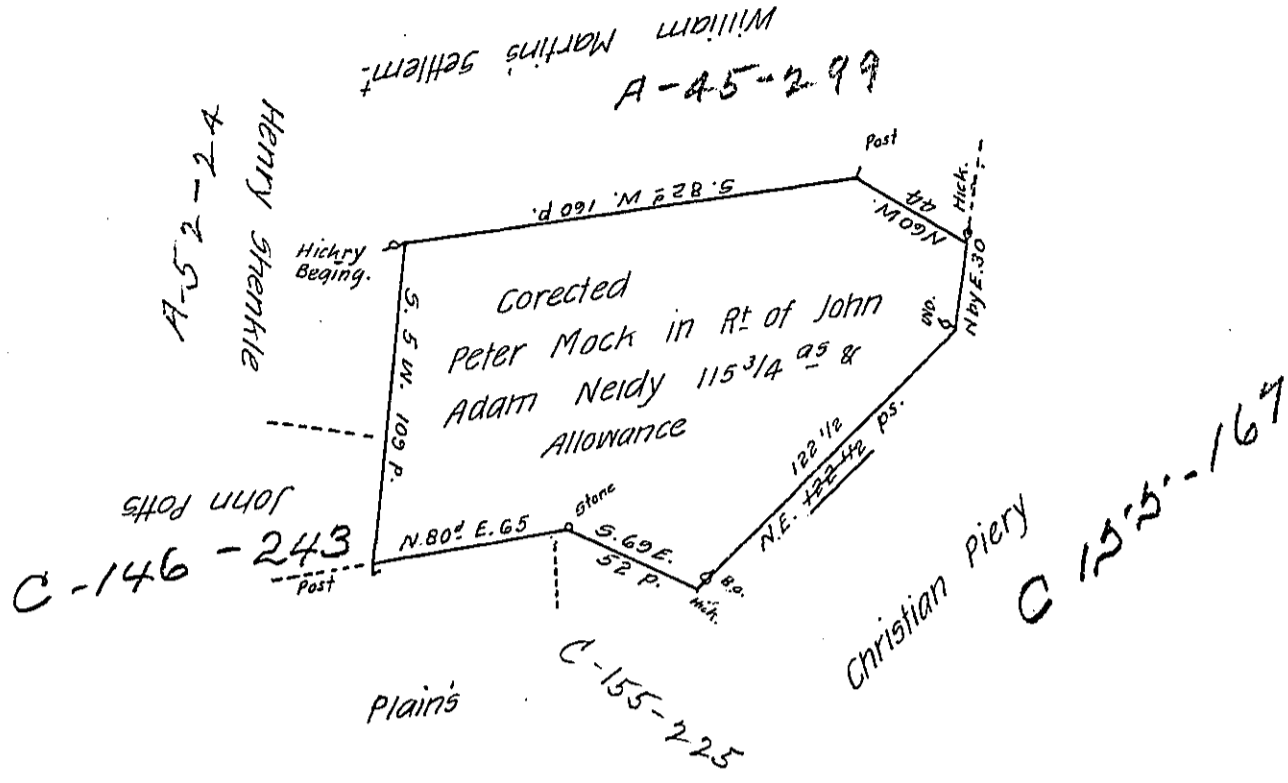 William Martin's Settlemt.
A-45-299
A-52-24
Henry Shenkle
Post
Hick.
S. 82d W. 160 p.
N60W.
44
Hickry
Beging.
N by E. 30
S. 5 W. 109 p.
Corected
Peter Mock in Rt of John
Adam Neidy 115 3/4 as &
Allowance
122 1/2
N.E. 122 42 ps.
John Potts
C-146-243
Post
N. 80d E. 65
Stone
S. 69 E.
52 p.
B.O.
Hick.
Christian Piery
Plain's
C-155-225